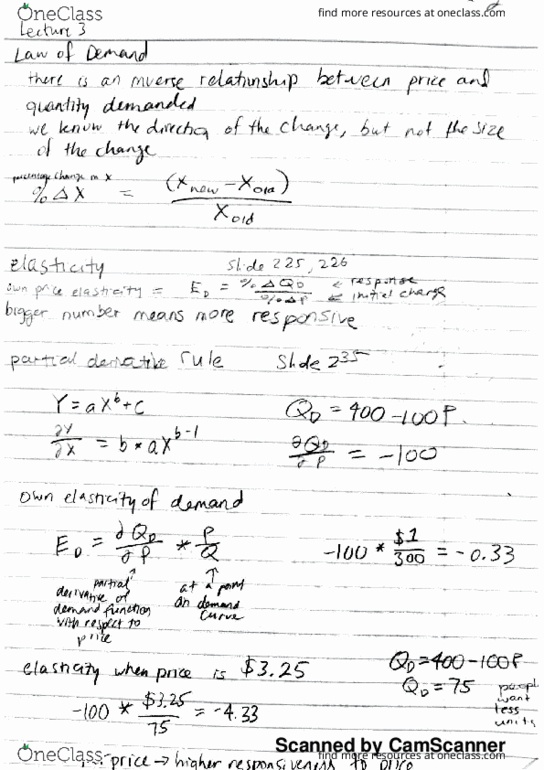 OneClass
find more resources at oneclass.com
Lecture 3
Law of Demand
there is an inverse relationship between price and
quantity demanded
we know the direction of the change, but not the size
of the change
percentage change in X
% Δ X = (X new - X old) / X old
elasticity slide 225, 226
own price elasticity = E D = % Δ Q D / % Δ P ← response ← initial change
bigger number means more responsive
partial derivative rule Slide 235
Y = aX^b + c Q D = 400 - 100P.
∂Y/∂X = b * aX^b-1 ∂Q D/∂P = -100
own elasticity of demand
E D = ∂Q D/∂P * P/Q -100 * $1/300 = -0.33
partial derivative of demand function with respect to price
at a point on demand curve
elasticity when price is $3.25
Q D = 400 - 100P
Q D = 75
people want less units
-100 * $3.25/75 = -4.33
Scanned by CamScanner
OneClass
find more resources at oneclass.com
price → higher responsiveness to price